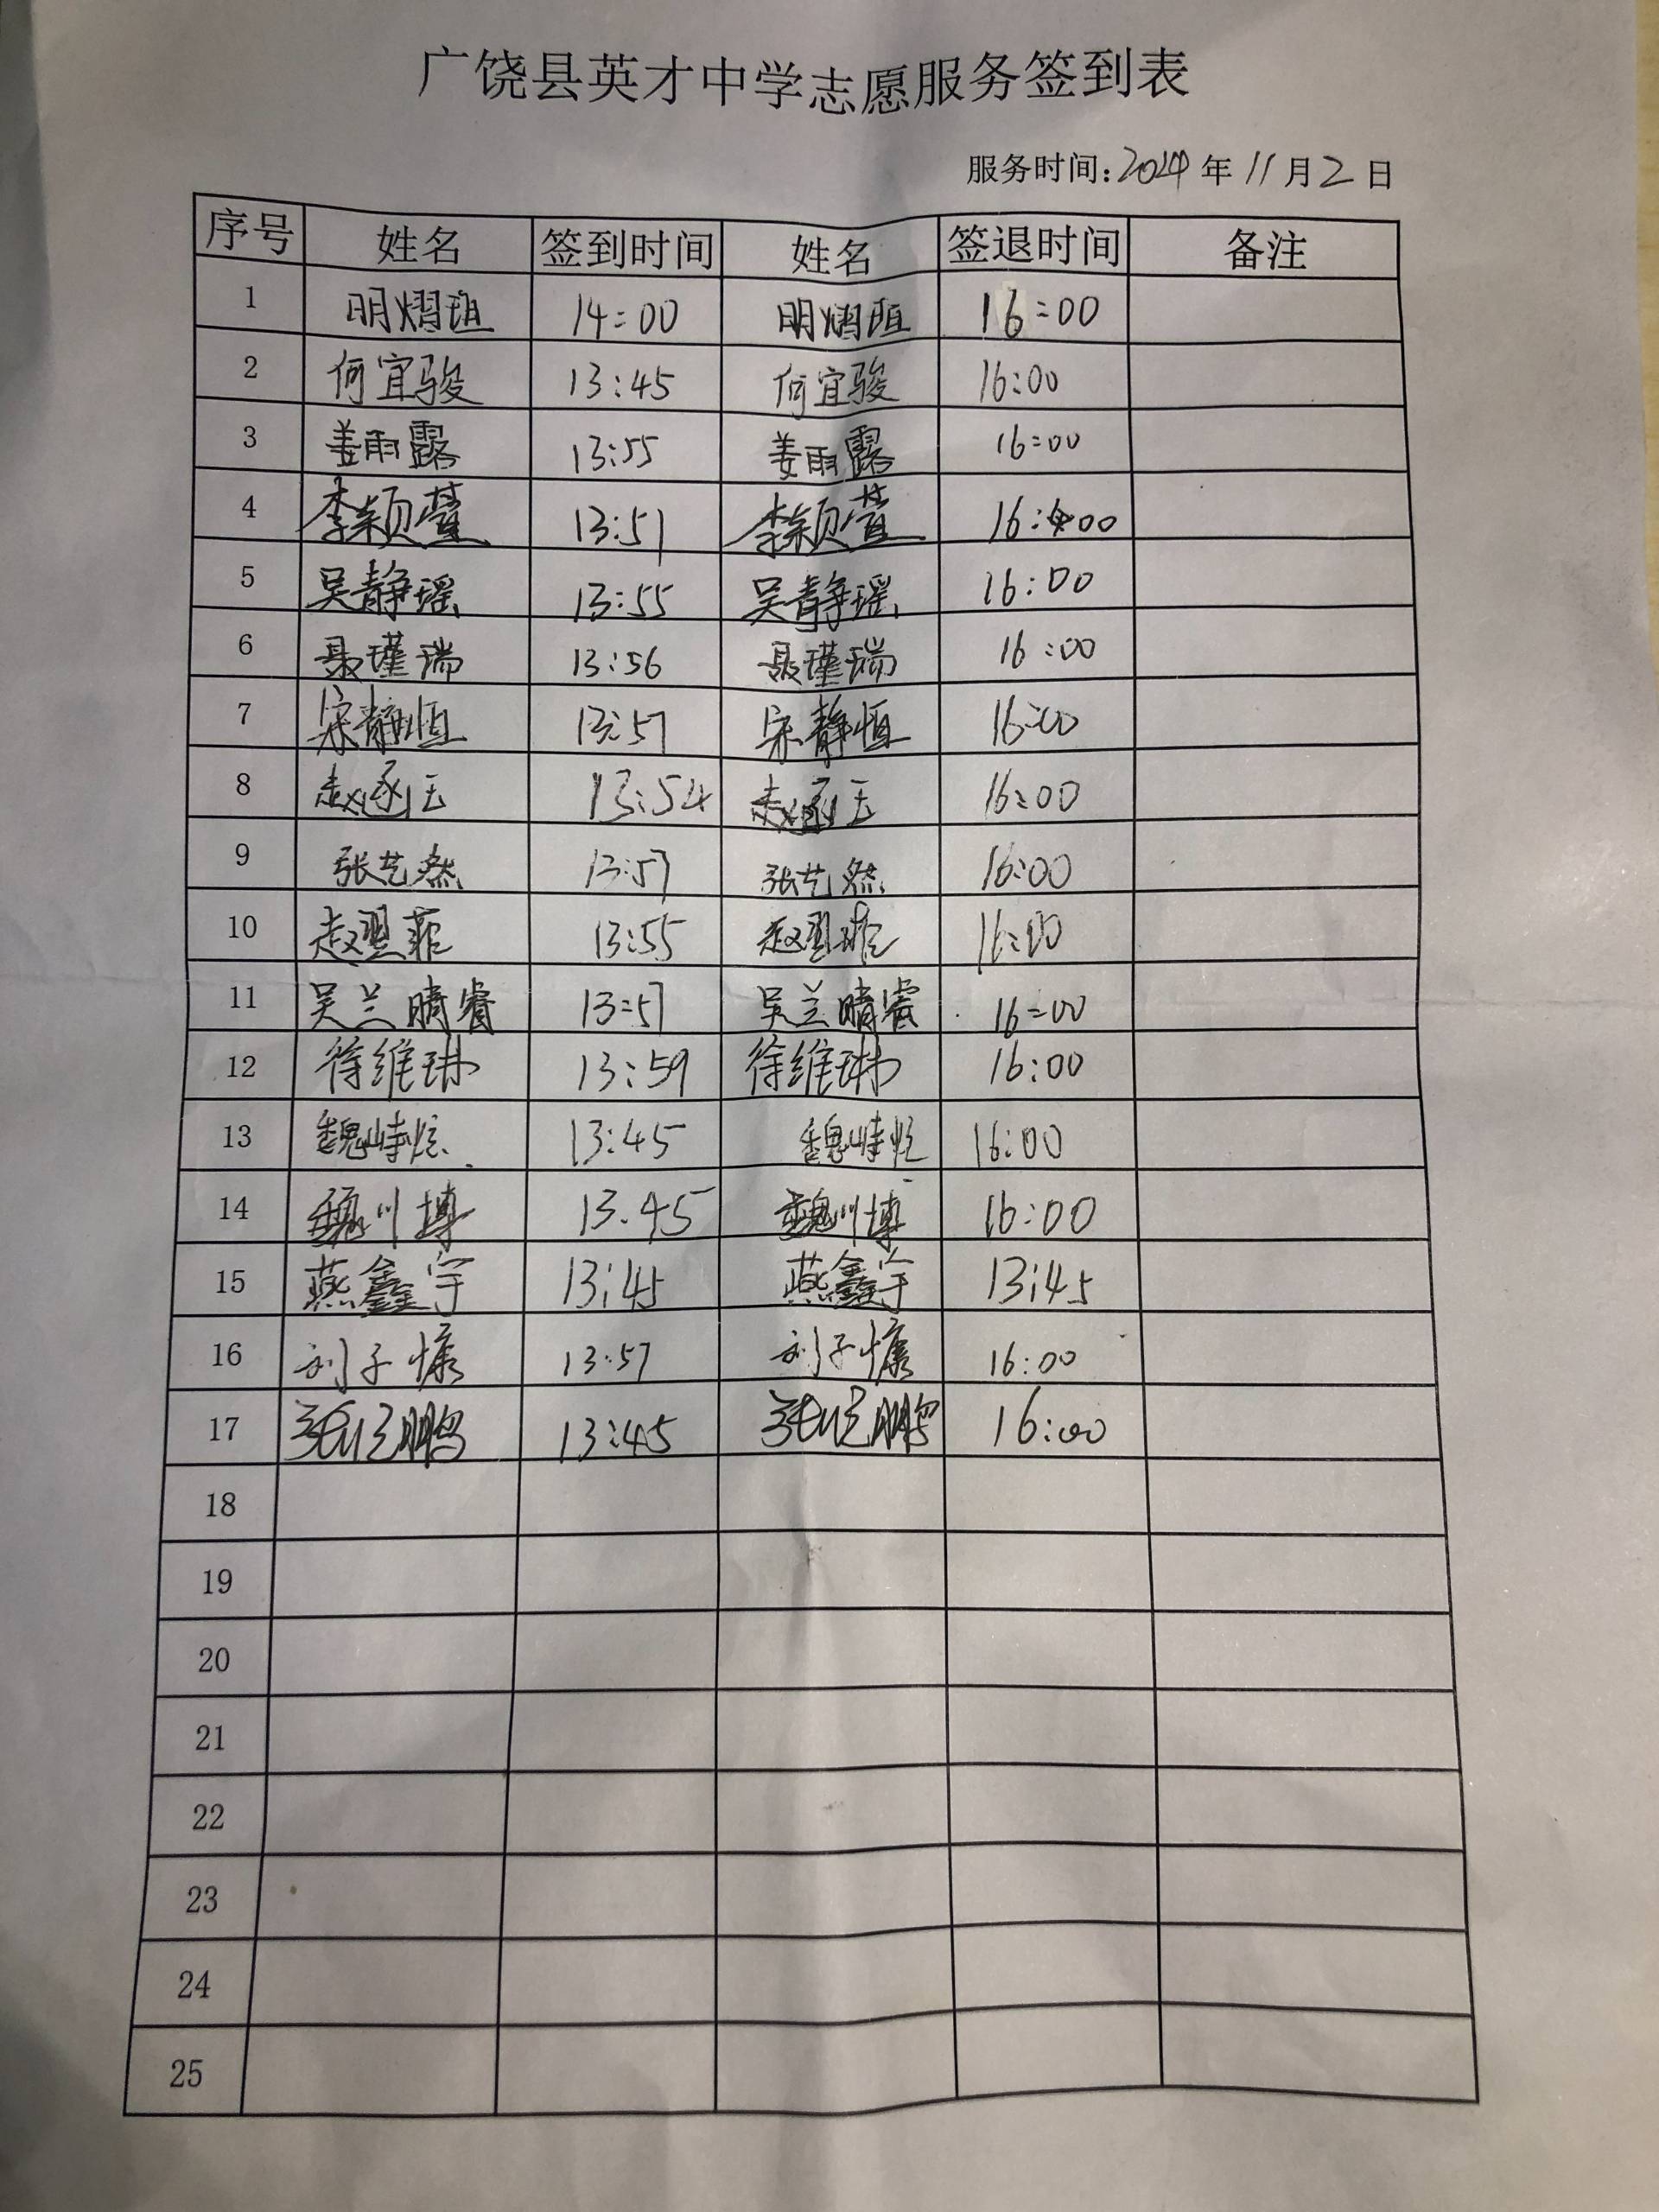 广饶县英才中学志愿服务签到表
服务时间:2024年11月2日
序号 姓名 签到时间 姓名 签退时间 备注
1 明熠珇 14:00 明熠 16:00
2 何宜骏 13:45 何宜骏 16:00
3 姜雨露 13:55 姜雨露 16:00
4 李颖萱 13:51 李颖萱 16:00
5 吴静瑶 13:55 吴静瑶 16:00
6 聂瑾瑞 13:56 聂瑾瑞 16:00
7 宋静恒 13:57 宋静恒 16:00
8 赵函玉 13:54 赵函玉 16:00
9 张艺然 13:57 张艺然 16:00
10 赵翌菲 13:55 赵翌菲 16:00
11 吴兰晴睿 13:57 吴兰晴睿 16:00
12 徐维琳 13:59 徐维琳 16:00
13 魏峙炫 13:45 魏峙炫 16:00
14 魏川博 13.45 魏川博 16:00
15 燕鑫宇 13:45 燕鑫宇 13:45
16 刘子慷 13:57 刘子慷 16:00
17 鹏 13:45 鹏 16:00
18
19
20
21
22
23
24
25